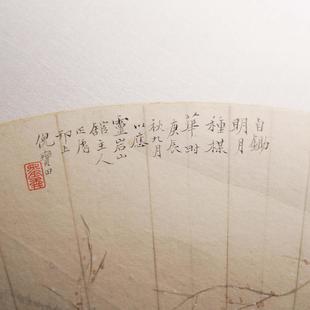 自鋤
明月
種楳
華时
庚辰
秋九月
以應
靈岩山
館主人
正属
邗上
倪寶田